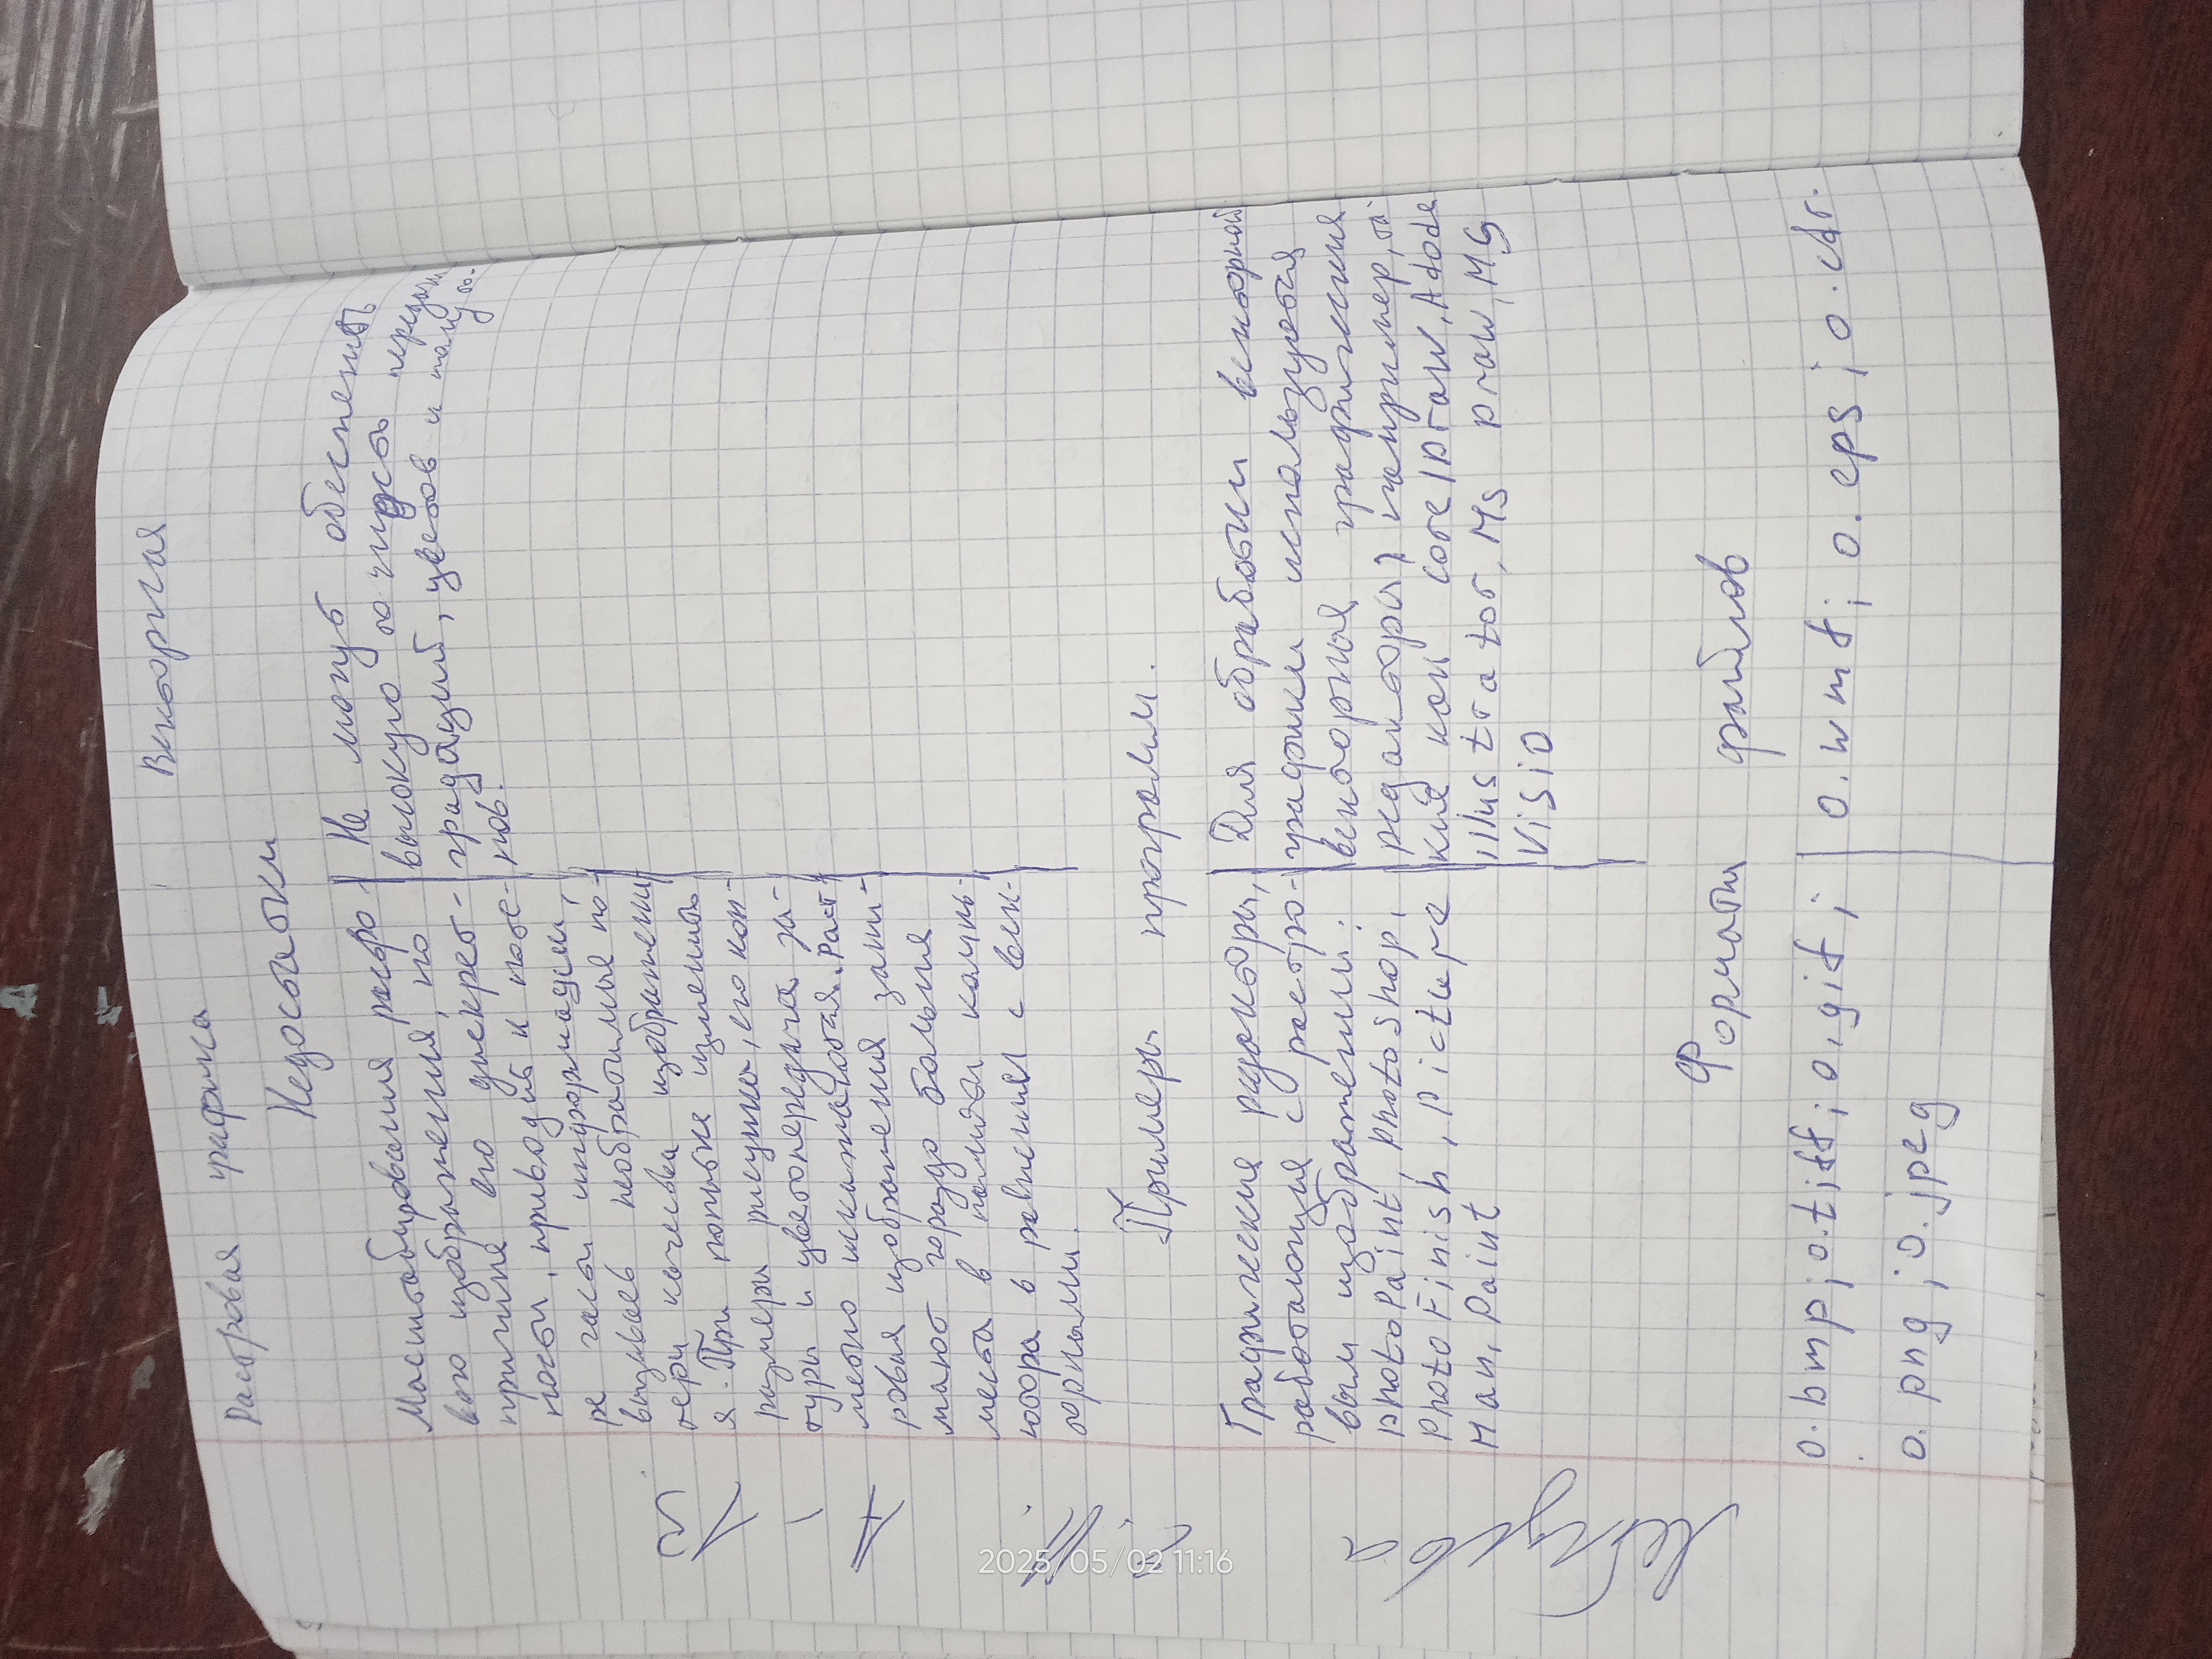 Растровая графика Векторная
Недостатки
Масштабирования растро-
вого изображения, по
причине его дискрет-
ности, приводит к поте-
ре части информации,
вызывает необратимые по-
тери качества изображени
я. При попытке изменить
размеры рисунка, его кон-
туры и цветопередача за-
метно искажаются. Раст
ровая изображения зани-
мают гораздо больше
места в памяти компь-
ютора в равнении с век-
торными.
Не могут обеспечить
высокую точность передачи
градаций, цветов и полу то-
нов.
Примеры программ.
Графические редакторы,
работающие с растро-
вым изображением:
photoPaint, photoshop,
Photo Finish, Picture
Man, Paint
Для обработки векторной
графики используется
векторныя графическия
редакторы, например, та
кия кои Corel Draw, Adode
illustrator, Ms Draw, MS
Visio
Форматы файлов
o.bmp; o.tiff; o.gif;
o.png; o.jpeg
o.wmf; o.eps; o.cdr.
2025/05/02 11:16